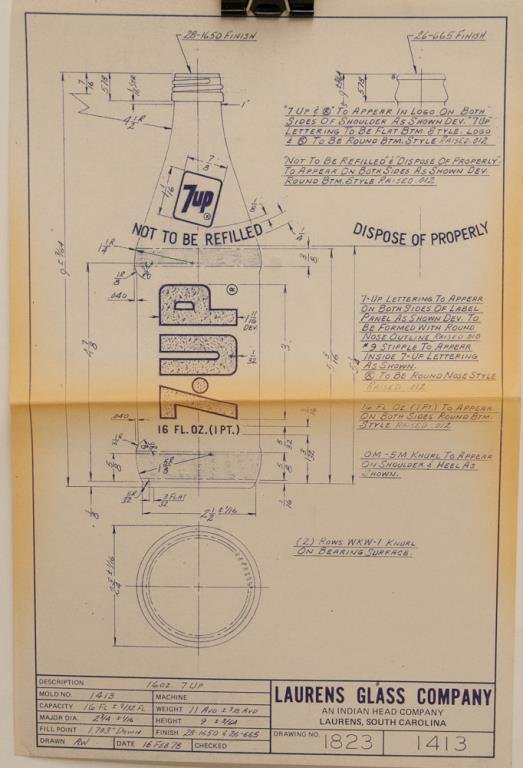 28-1650 FINISH
26-665 FINISH
"7 UP & ®" TO APPEAR IN LOGO ON BOTH
SIDES OF SHOULDER AS SHOWN DEV. "7UP
LETTERING TO BE FLAT BTM. STYLE. LOGO
& ® TO BE ROUND BTM. STYLE RAISED .012
"NOT TO BE REFILLED" & "DISPOSE OF PROPERLY"
TO APPEAR ON BOTH SIDES AS SHOWN DEV.
ROUND BTM. STYLE RAISED .012
7up®
NOT TO BE REFILLED
DISPOSE OF PROPERLY
.040
7·UP®
DEV.
7-UP LETTERING TO APPEAR
ON BOTH SIDES OF LABEL
PANEL AS SHOWN DEV. TO
BE FORMED WITH ROUND
NOSE OUTLINE RAISED .010
#9 STIPPLE TO APPEAR
INSIDE 7-UP LETTERING
AS SHOWN.
® TO BE ROUND NOSE STYLE
RAISED .012
16 FL. OZ. (1 PT.) TO APPEAR
ON BOTH SIDES ROUND BTM.
STYLE RAISED .012
.040
16 FL. OZ. (1 PT.)
OM-5M KNURL TO APPEAR
ON SHOULDER & HEEL AS
SHOWN.
3/32 FLAT
2 1/2 ± 1/16
(2) ROWS WKW-1 KNURL
ON BEARING SURFACE.
2 3/4 ± 1/16
DESCRIPTION 16 OZ. 7 UP
MOLD NO. 1413 MACHINE
CAPACITY 16 FL ± 9/32 FL WEIGHT 11 AVO
MAJOR DIA. 2 3/4 ± 1/16 HEIGHT 9 ± 3/64
FILL POINT 1.703" DOWN FINISH 28-1650 & 26-665
DRAWN RW DATE 16 FEB 78 CHECKED
LAURENS GLASS COMPANY
AN INDIAN HEAD COMPANY
LAURENS, SOUTH CAROLINA
DRAWING NO. 1823 1413